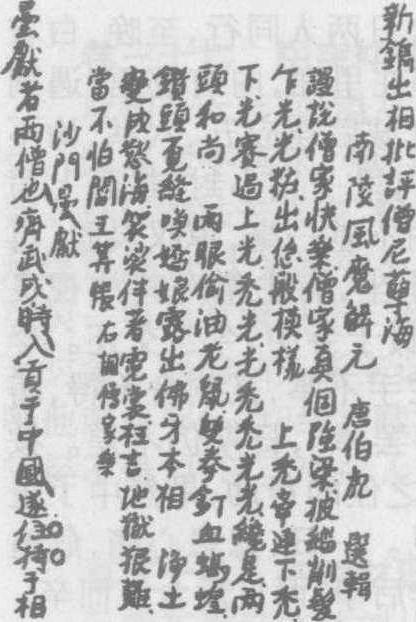 新鐫出相批評僧尼孽海
南陵風魔解元 唐伯虎 選輯
謾說僧家快樂僧家真個強梁披緇削髮
乍光光粧出恁般模樣 上禿帝連下禿
下光賽過上光禿光光禿禿光光纔是兩
頭和尚 兩眼偷油老鼠雙拳釘血螞蝗
鑽頭覓縫喚嬌娘露出佛牙本相 淨土
變成慾海袈裟伴著霓裳枉言地獄狠難
當不怕閻王算賬 右調僧家樂
沙門曇獻
曇獻者西僧也齊武成時入首于中國遂住持于相